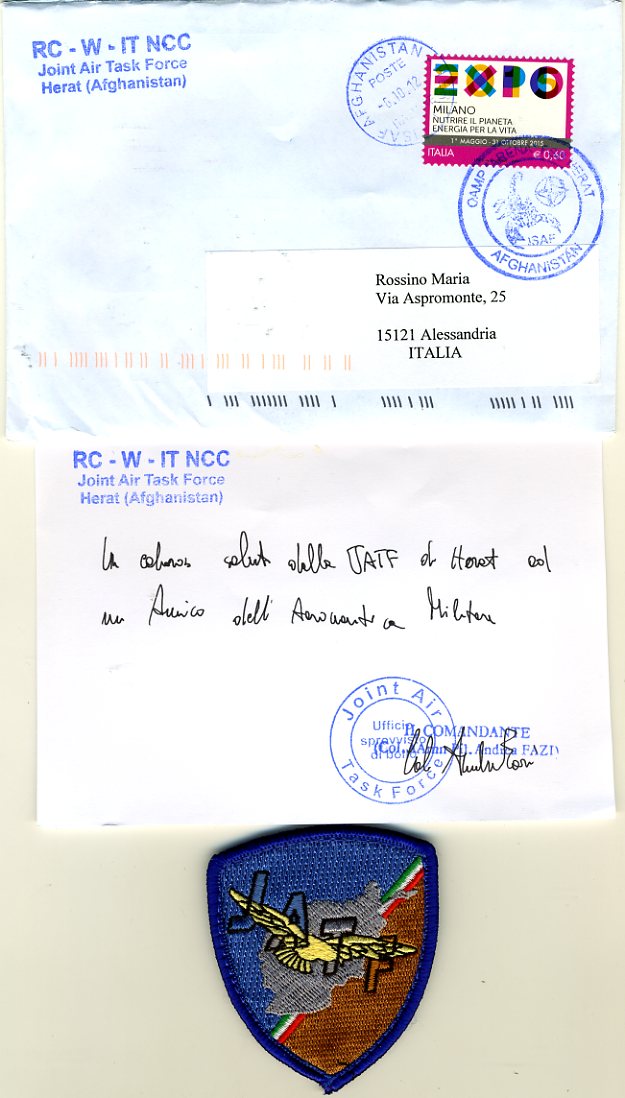 RC - W - IT NCC
Joint Air Task Force
Herat (Afghanistan)
AFGHANISTAN
POSTE
-6.10.12
ISAF
EXPO
MILANO
NUTRIRE IL PIANETA
ENERGIA PER LA VITA
1° MAGGIO - 31 OTTOBRE 2015
ITALIA € 0,60
CAMP HERAT
ISAF
AFGHANISTAN
Rossino Maria
Via Aspromonte, 25
15121 Alessandria
ITALIA
RC - W - IT NCC
Joint Air Task Force
Herat (Afghanistan)
Un caloroso saluto dalla JATF di Herat ad
un Amico dell' Aeronautica Militare
Joint Air
Task Force
Ufficio
sprovvisto
di bollo
IL COMANDANTE
(Col. Andrea FAZI)
JATF